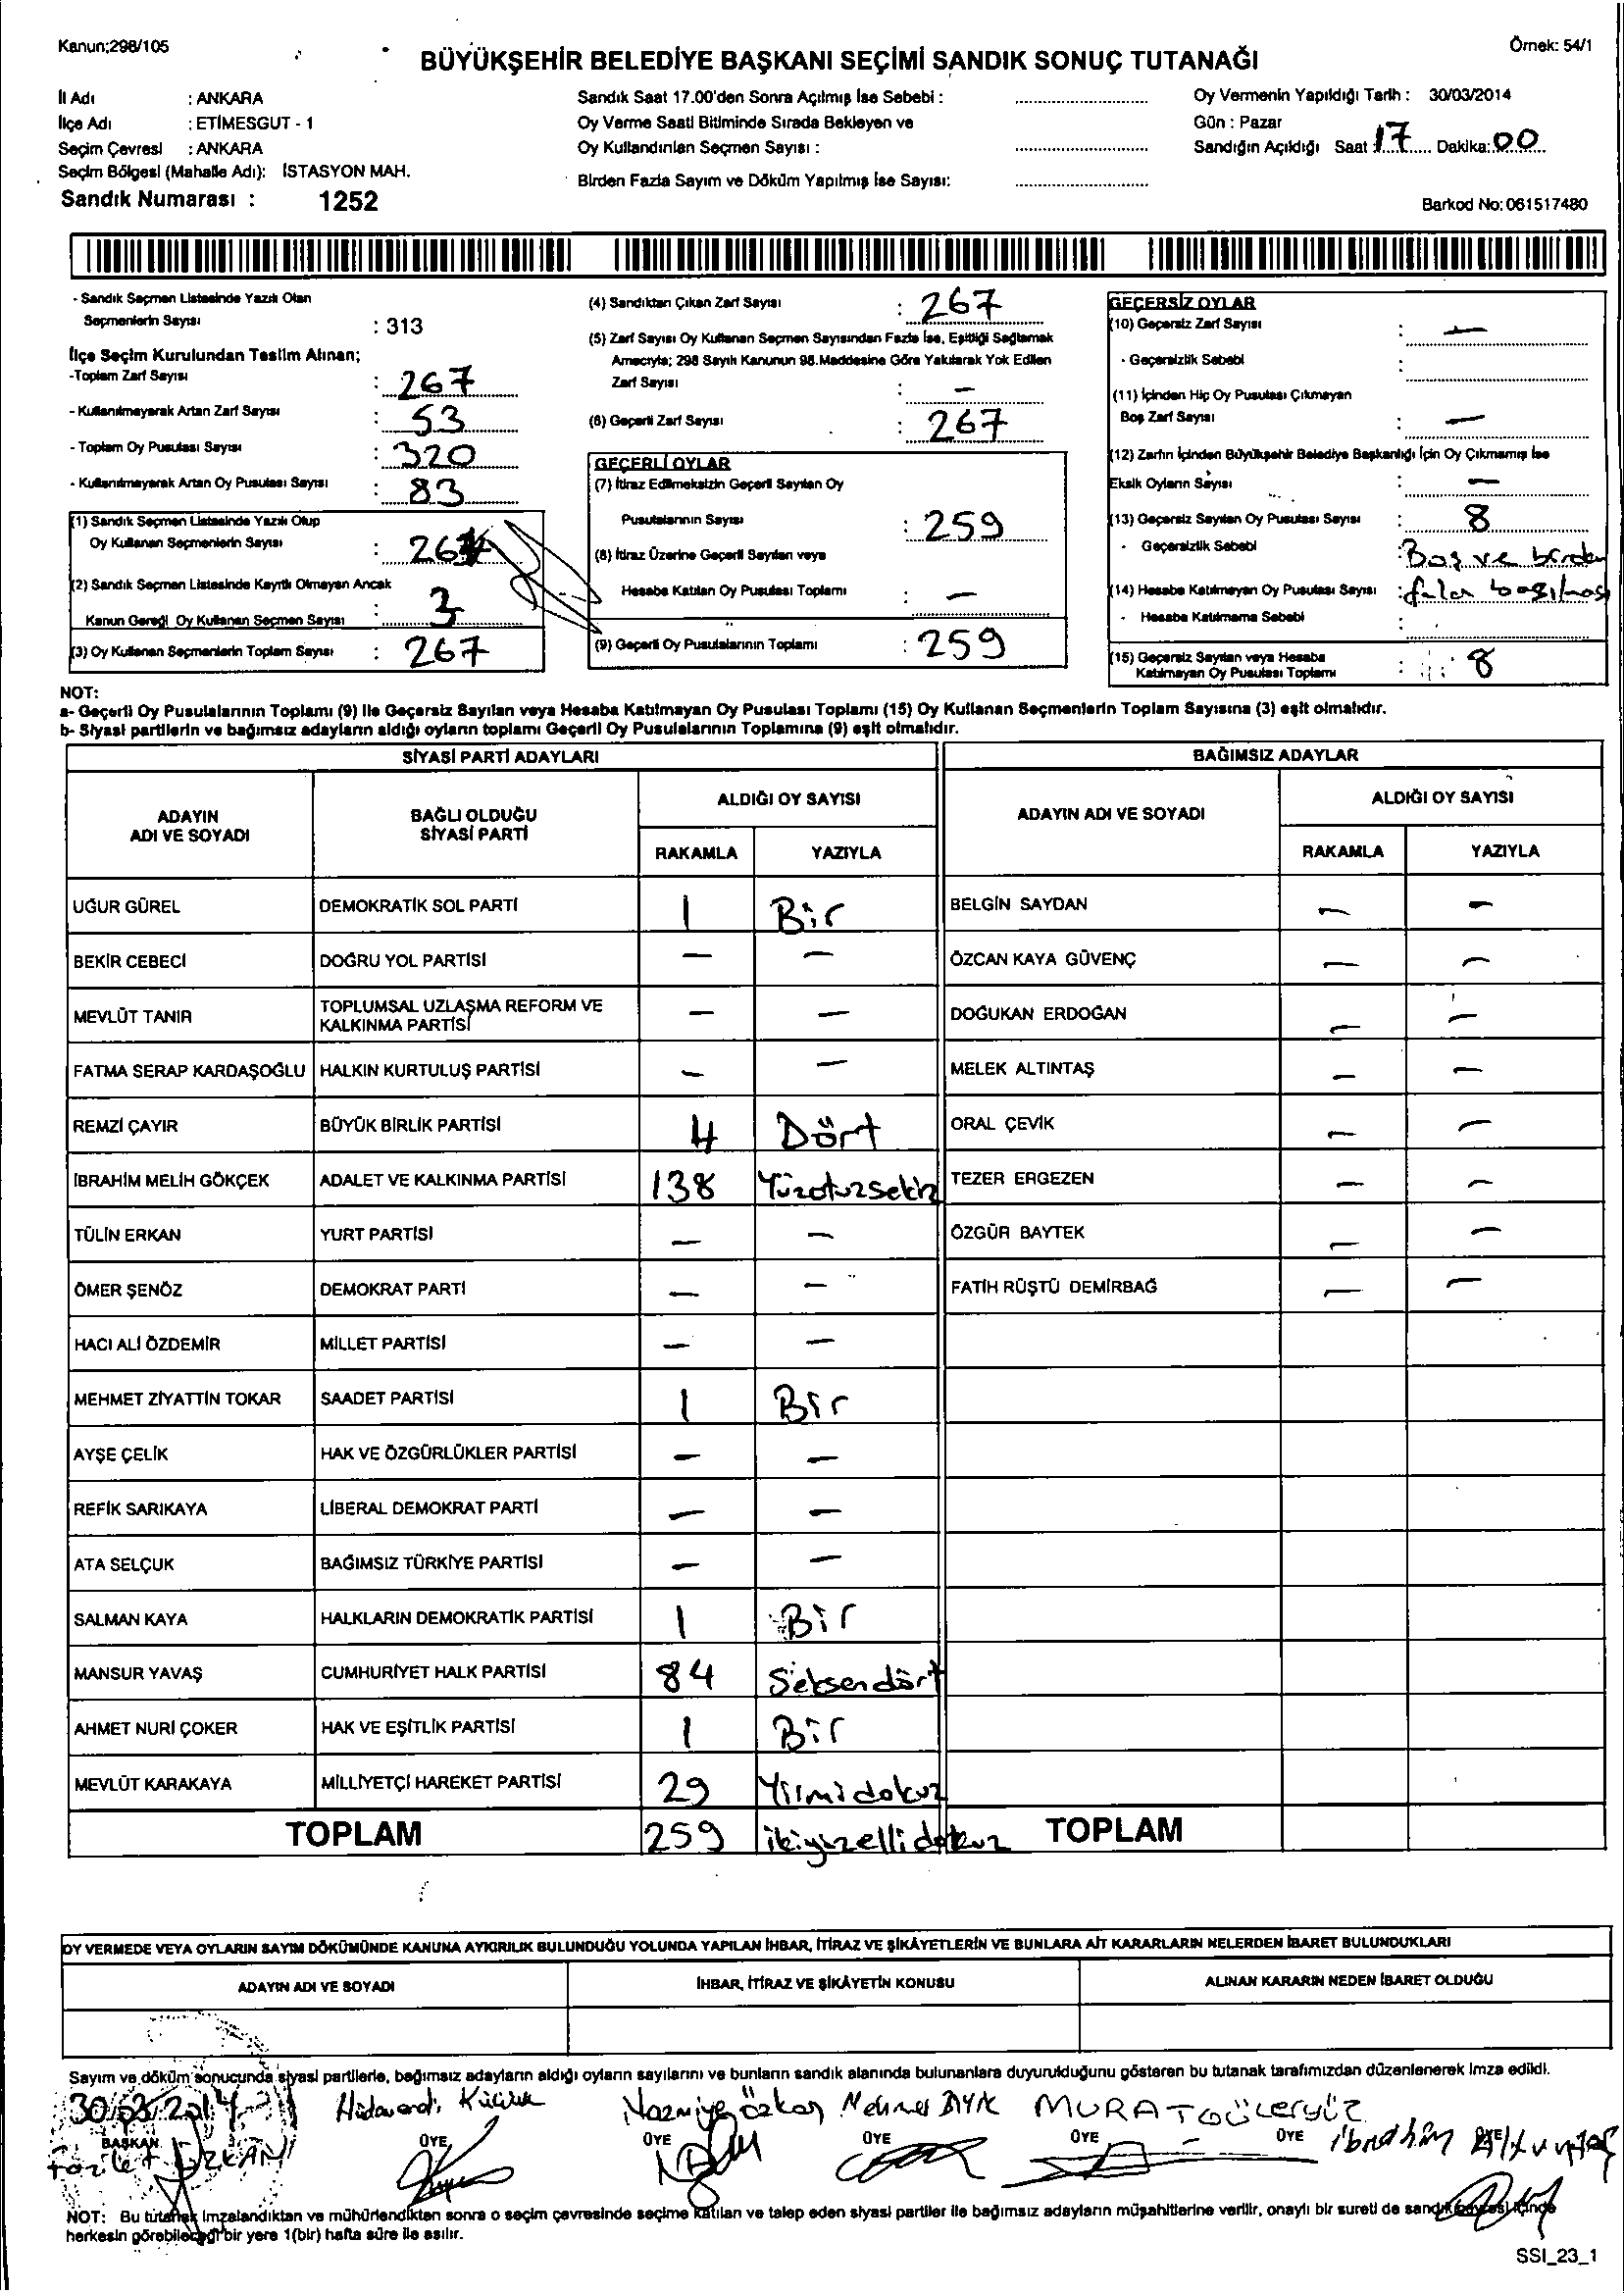 Kanun;298/105
Örnek: 54/1
BÜYÜKŞEHİR BELEDİYE BAŞKANI SEÇİMİ SANDIK SONUÇ TUTANAĞI
İl Adı : ANKARA
İlçe Adı : ETİMESGUT - 1
Seçim Çevresi : ANKARA
Seçim Bölgesi (Mahalle Adı): İSTASYON MAH.
Sandık Numarası : 1252
Sandık Saat 17.00'den Sonra Açılmış İse Sebebi :
Oy Verme Saati Bitiminde Sırada Bekleyen ve
Oy Kullandırılan Seçmen Sayısı :
Birden Fazla Sayım ve Döküm Yapılmış İse Sayısı:
Oy Vermenin Yapıldığı Tarih : 30/03/2014
Gün : Pazar
Sandığın Açıldığı Saat : 17 Dakika: 00
Barkod No: 061517480
- Sandık Seçmen Listesinde Yazılı Olan
Seçmenlerin Sayısı : 313
İlçe Seçim Kurulundan Teslim Alınan;
-Toplam Zarf Sayısı : 267
- Kullanılmayarak Artan Zarf Sayısı : 53
- Toplam Oy Pusulası Sayısı : 320
- Kullanılmayarak Artan Oy Pusulası Sayısı : 83
(1) Sandık Seçmen Listesinde Yazılı Olup
Oy Kullanan Seçmenlerin Sayısı :
(2) Sandık Seçmen Listesinde Kayıtlı Olmayan Ancak
Kanun Gereği Oy Kullanan Seçmen Sayısı : 3
(3) Oy Kullanan Seçmenlerin Toplam Sayısı : 267
(4) Sandıktan Çıkan Zarf Sayısı : 267
(5) Zarf Sayısı Oy Kullanan Seçmen Sayısından Fazla İse, Eşitliği Sağlamak
Amacıyla; 298 Sayılı Kanunun 98.Maddesine Göre Yakılarak Yok Edilen
Zarf Sayısı : –
(6) Geçerli Zarf Sayısı : 267
GEÇERLİ OYLAR
(7) İtiraz Edilmeksizin Geçerli Sayılan Oy
Pusulalarının Sayısı : 259
(8) İtiraz Üzerine Geçerli Sayılan veya
Hesaba Katılan Oy Pusulası Toplamı : –
(9) Geçerli Oy Pusulalarının Toplamı : 259
GEÇERSİZ OYLAR
(10) Geçersiz Zarf Sayısı : –
- Geçersizlik Sebebi :
(11) İçinden Hiç Oy Pusulası Çıkmayan
Boş Zarf Sayısı : –
(12) Zarfın İçinden Büyükşehir Belediye Başkanlığı İçin Oy Çıkmamış İse
Eksik Oyların Sayısı : –
(13) Geçersiz Sayılan Oy Pusulası Sayısı : 8
- Geçersizlik Sebebi : Boş ve birden
(14) Hesaba Katılmayan Oy Pusulası Sayısı :
- Hesaba Katılmama Sebebi :
(15) Geçersiz Sayılan veya Hesaba
Katılmayan Oy Pusulası Toplamı : 8
NOT:
a- Geçerli Oy Pusulalarının Toplamı (9) ile Geçersiz Sayılan veya Hesaba Katılmayan Oy Pusulası Toplamı (15) Oy Kullanan Seçmenlerin Toplam Sayısına (3) eşit olmalıdır.
b- Siyasi partilerin ve bağımsız adayların aldığı oyların toplamı Geçerli Oy Pusulalarının Toplamına (9) eşit olmalıdır.
SİYASİ PARTİ ADAYLARI BAĞIMSIZ ADAYLAR
ADAYIN ADI VE SOYADI BAĞLI OLDUĞU SİYASİ PARTİ ALDIĞI OY SAYISI ADAYIN ADI VE SOYADI ALDIĞI OY SAYISI
RAKAMLA YAZIYLA RAKAMLA YAZIYLA
UĞUR GÜREL DEMOKRATİK SOL PARTİ 1 Bir BELGİN SAYDAN – –
BEKİR CEBECİ DOĞRU YOL PARTİSİ – – ÖZCAN KAYA GÜVENÇ – –
MEVLÜT TANIR TOPLUMSAL UZLAŞMA REFORM VE KALKINMA PARTİSİ – – DOĞUKAN ERDOĞAN – –
FATMA SERAP KARDAŞOĞLU HALKIN KURTULUŞ PARTİSİ – – MELEK ALTINTAŞ – –
REMZİ ÇAYIR BÜYÜK BİRLİK PARTİSİ 4 Dört ORAL ÇEVİK – –
İBRAHİM MELİH GÖKÇEK ADALET VE KALKINMA PARTİSİ 138 Yüzotuzsekiz TEZER ERGEZEN – –
TÜLİN ERKAN YURT PARTİSİ – – ÖZGÜR BAYTEK – –
ÖMER ŞENÖZ DEMOKRAT PARTİ – – FATİH RÜŞTÜ DEMİRBAĞ – –
HACI ALİ ÖZDEMİR MİLLET PARTİSİ – –
MEHMET ZİYATTİN TOKAR SAADET PARTİSİ 1 Bir
AYŞE ÇELİK HAK VE ÖZGÜRLÜKLER PARTİSİ – –
REFİK SARIKAYA LİBERAL DEMOKRAT PARTİ – –
ATA SELÇUK BAĞIMSIZ TÜRKİYE PARTİSİ – –
SALMAN KAYA HALKLARIN DEMOKRATİK PARTİSİ 1 Bir
MANSUR YAVAŞ CUMHURİYET HALK PARTİSİ 84 Seksendört
AHMET NURİ ÇOKER HAK VE EŞİTLİK PARTİSİ 1 Bir
MEVLÜT KARAKAYA MİLLİYETÇİ HAREKET PARTİSİ 29 Yirmidokuz
TOPLAM 259 ikiyüzellidokuz TOPLAM
OY VERMEDE VEYA OYLARIN SAYIM DÖKÜMÜNDE KANUNA AYKIRILIK BULUNDUĞU YOLUNDA YAPILAN İHBAR, İTİRAZ VE ŞİKÂYETLERİN VE BUNLARA AİT KARARLARIN NELERDEN İBARET BULUNDUKLARI
ADAYIN ADI VE SOYADI İHBAR, İTİRAZ VE ŞİKÂYETİN KONUSU ALINAN KARARIN NEDEN İBARET OLDUĞU
Sayım ve döküm sonucunda siyasi partilerle, bağımsız adayların aldığı oyların sayılarını ve bunların sandık alanında bulunanlara duyurulduğunu gösteren bu tutanak tarafımızdan düzenlenerek imza edildi.
30/03/2014 Nazmiye özkan MURAT
BAŞKAN ÜYE ÜYE ÜYE ÜYE ÜYE ÜYE
ibrahim
NOT: Bu tutanak imzalandıktan ve mühürlendikten sonra o seçim çevresinde seçime katılan ve talep eden siyasi partiler ile bağımsız adayların müşahitlerine verilir, onaylı bir sureti de sandık çevresi içinde
herkesin görebileceği bir yere 1(bir) hafta süre ile asılır.
SSI_23_1